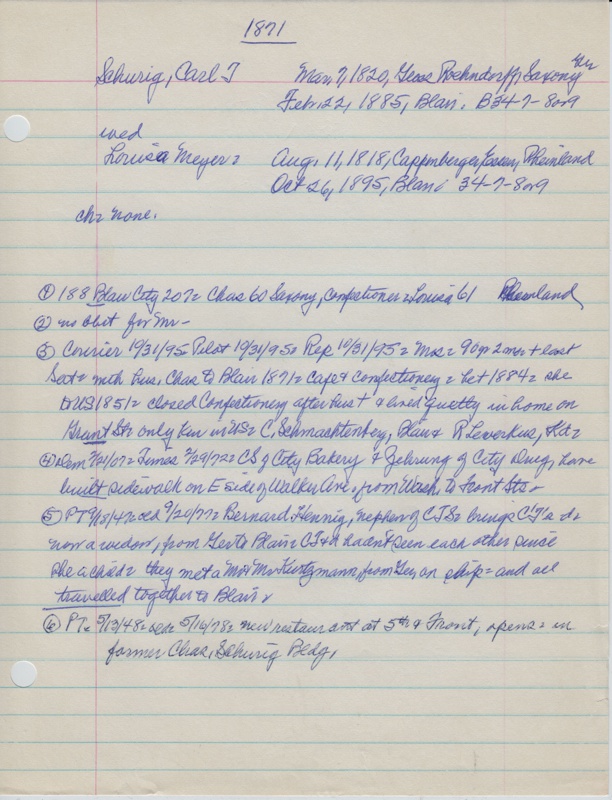 1871
Schurig, Carl T Mar, 7, 1820, Saxony
Feb, 22, 1885, Blair, B34-7-8or9
wed
Louisa Meyer= Aug, 11, 1818, Rheinland
Oct 26, 1895, Blair 34-7-8or9
ch= none.
① 188 Blair City 207= Chas 60 Saxony, Confectioner Louisa 61 Rheinland
② no obit for Mr-
③ Courier 10/31/95 Pilot 10/31/95 Rep 10/31/95= Mrs= 90yr 2mo
with hus. Chas to Blair 1871= Cafe & Confectionery = 1884= she
to US 1851= closed Confectionery after & lived quietly in home on
Grant St= only kin in US= C, Schmachtenberg, Blair & R Leverkus,
④ Times CS of City Bakery & Gehrung of City Drug, have
built sidewalk on E side of Walker Ave, from Wash, to Front Sts-
⑤ 9/20/77= Bernard Hennig, nephew of CTS= brings CT's
now a widow, from Ger to Blair= CT & hadn't seen each other since
she a child= they met a Mr & Mrs Kurtzmann, from Ger, on ship= and all
travelled together to Blair
⑥ PT= 5/13/48= 5/16/78= new restaurant at 5th & Front, opens= in
former Chas, Schurig Bldg,